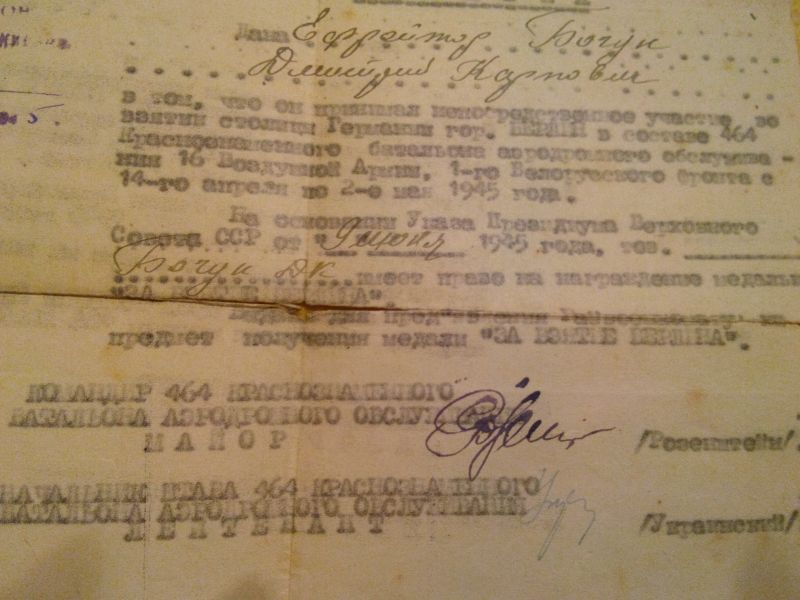 Дана Ефрейтор Богун
Дмитрий Карпович
в том, что он принимал непосредственное участие во
взятии столицы Германии гор. БЕРЛИН в составе 464
Краснознаменного батальона аэродромного обслужива-
ния 16 Воздушной Армии, 1-го Белорусского фронта с
14-го апреля по 2-е мая 1945 года.
На основании Указа Президиума Верховного
Совета ССР от "9 июня 1945 года, тов.
Богун ДК имеет право на награждение медалью
"ЗА ВЗЯТИЕ БЕРЛИНА".
Выдана для предъявления на
предмет получения медали "ЗА ВЗЯТИЕ БЕРЛИНА".
КОМАНДИР 464 КРАСНОЗНАМЕННОГО
БАТАЛЬОНА АЭРОДРОМНОГО ОБСЛУЖИВ
МАЙОР /Розенштейн/
НАЧАЛЬНИК ШТАБА 464 КРАСНОЗНАМЕННОГО
БАТАЛЬОНА АЭРОДРОМНОГО ОБСЛУЖИВАНИЯ
ЛЕЙТЕНАНТ /Украинский/